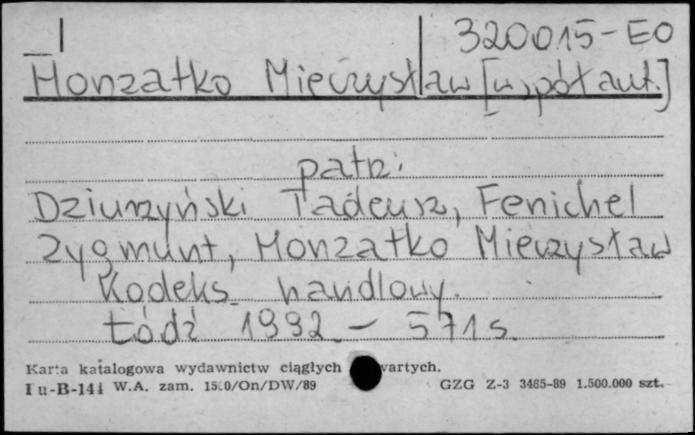 320015-EO
Honzatko Mieczysław [współaut.]
patrz:
Dziurzyński Tadeusz, Fenichel
Zygmunt, Honzatko Mieczysław
Kodeks handlowy.
Łódź 1992 - 571 s.
Karta katalogowa wydawnictw ciągłych wartych.
Pu-B-144 W.A. zam. 1500/On/DW/89 GZG Z-3 3465-89 1.500.000 szt.